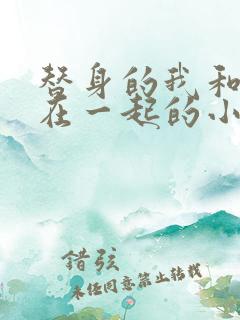 替身的我和
在一起的小
錯弦
未经同意禁止转载